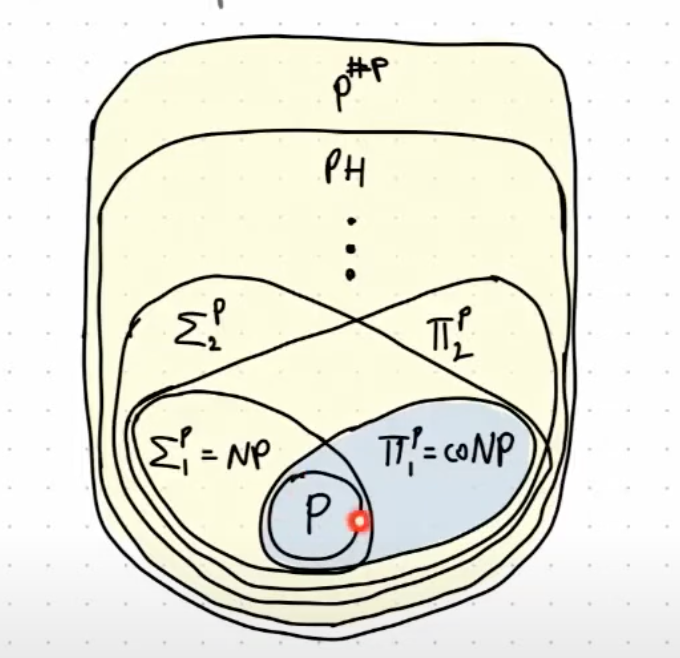 P^#P
PH
Σ₂^P
Π₂^P
Σ₁^P = NP
Π₁^P = coNP
P